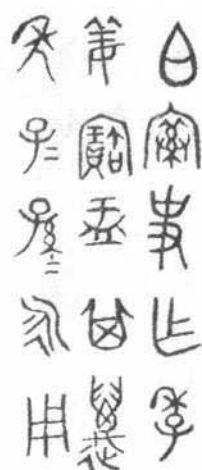 白索史乍季
姜寶盂其萬
年子＝孫＝永用